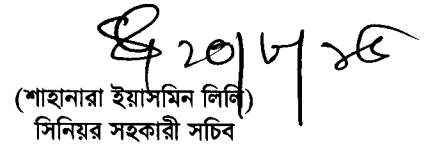 ২০/৮/২৫
(শাহানারা ইয়াসমিন লিলি)
সিনিয়র সহকারী সচিব